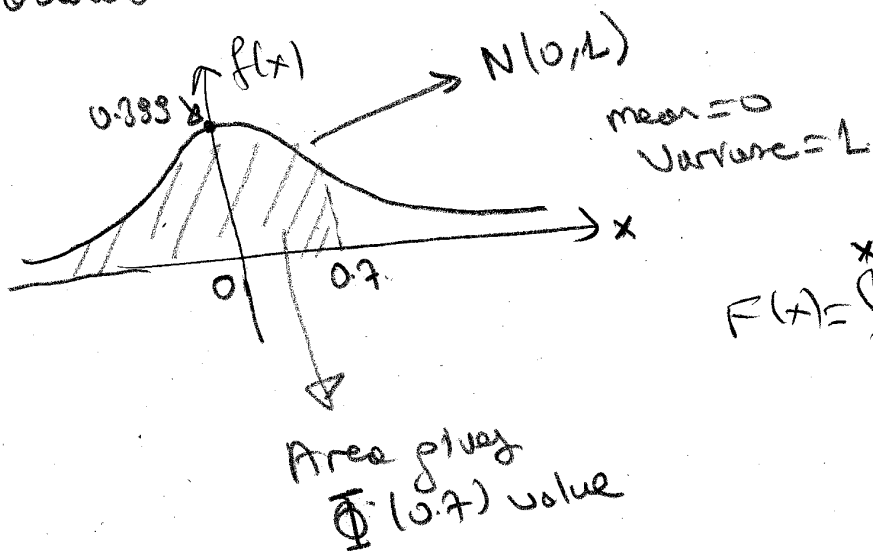 f(x)
0.399
N(0,1)
mean = 0
Variance = 1
x
0
0.7
F(x) =
x
Area gives
Φ(0.7) value